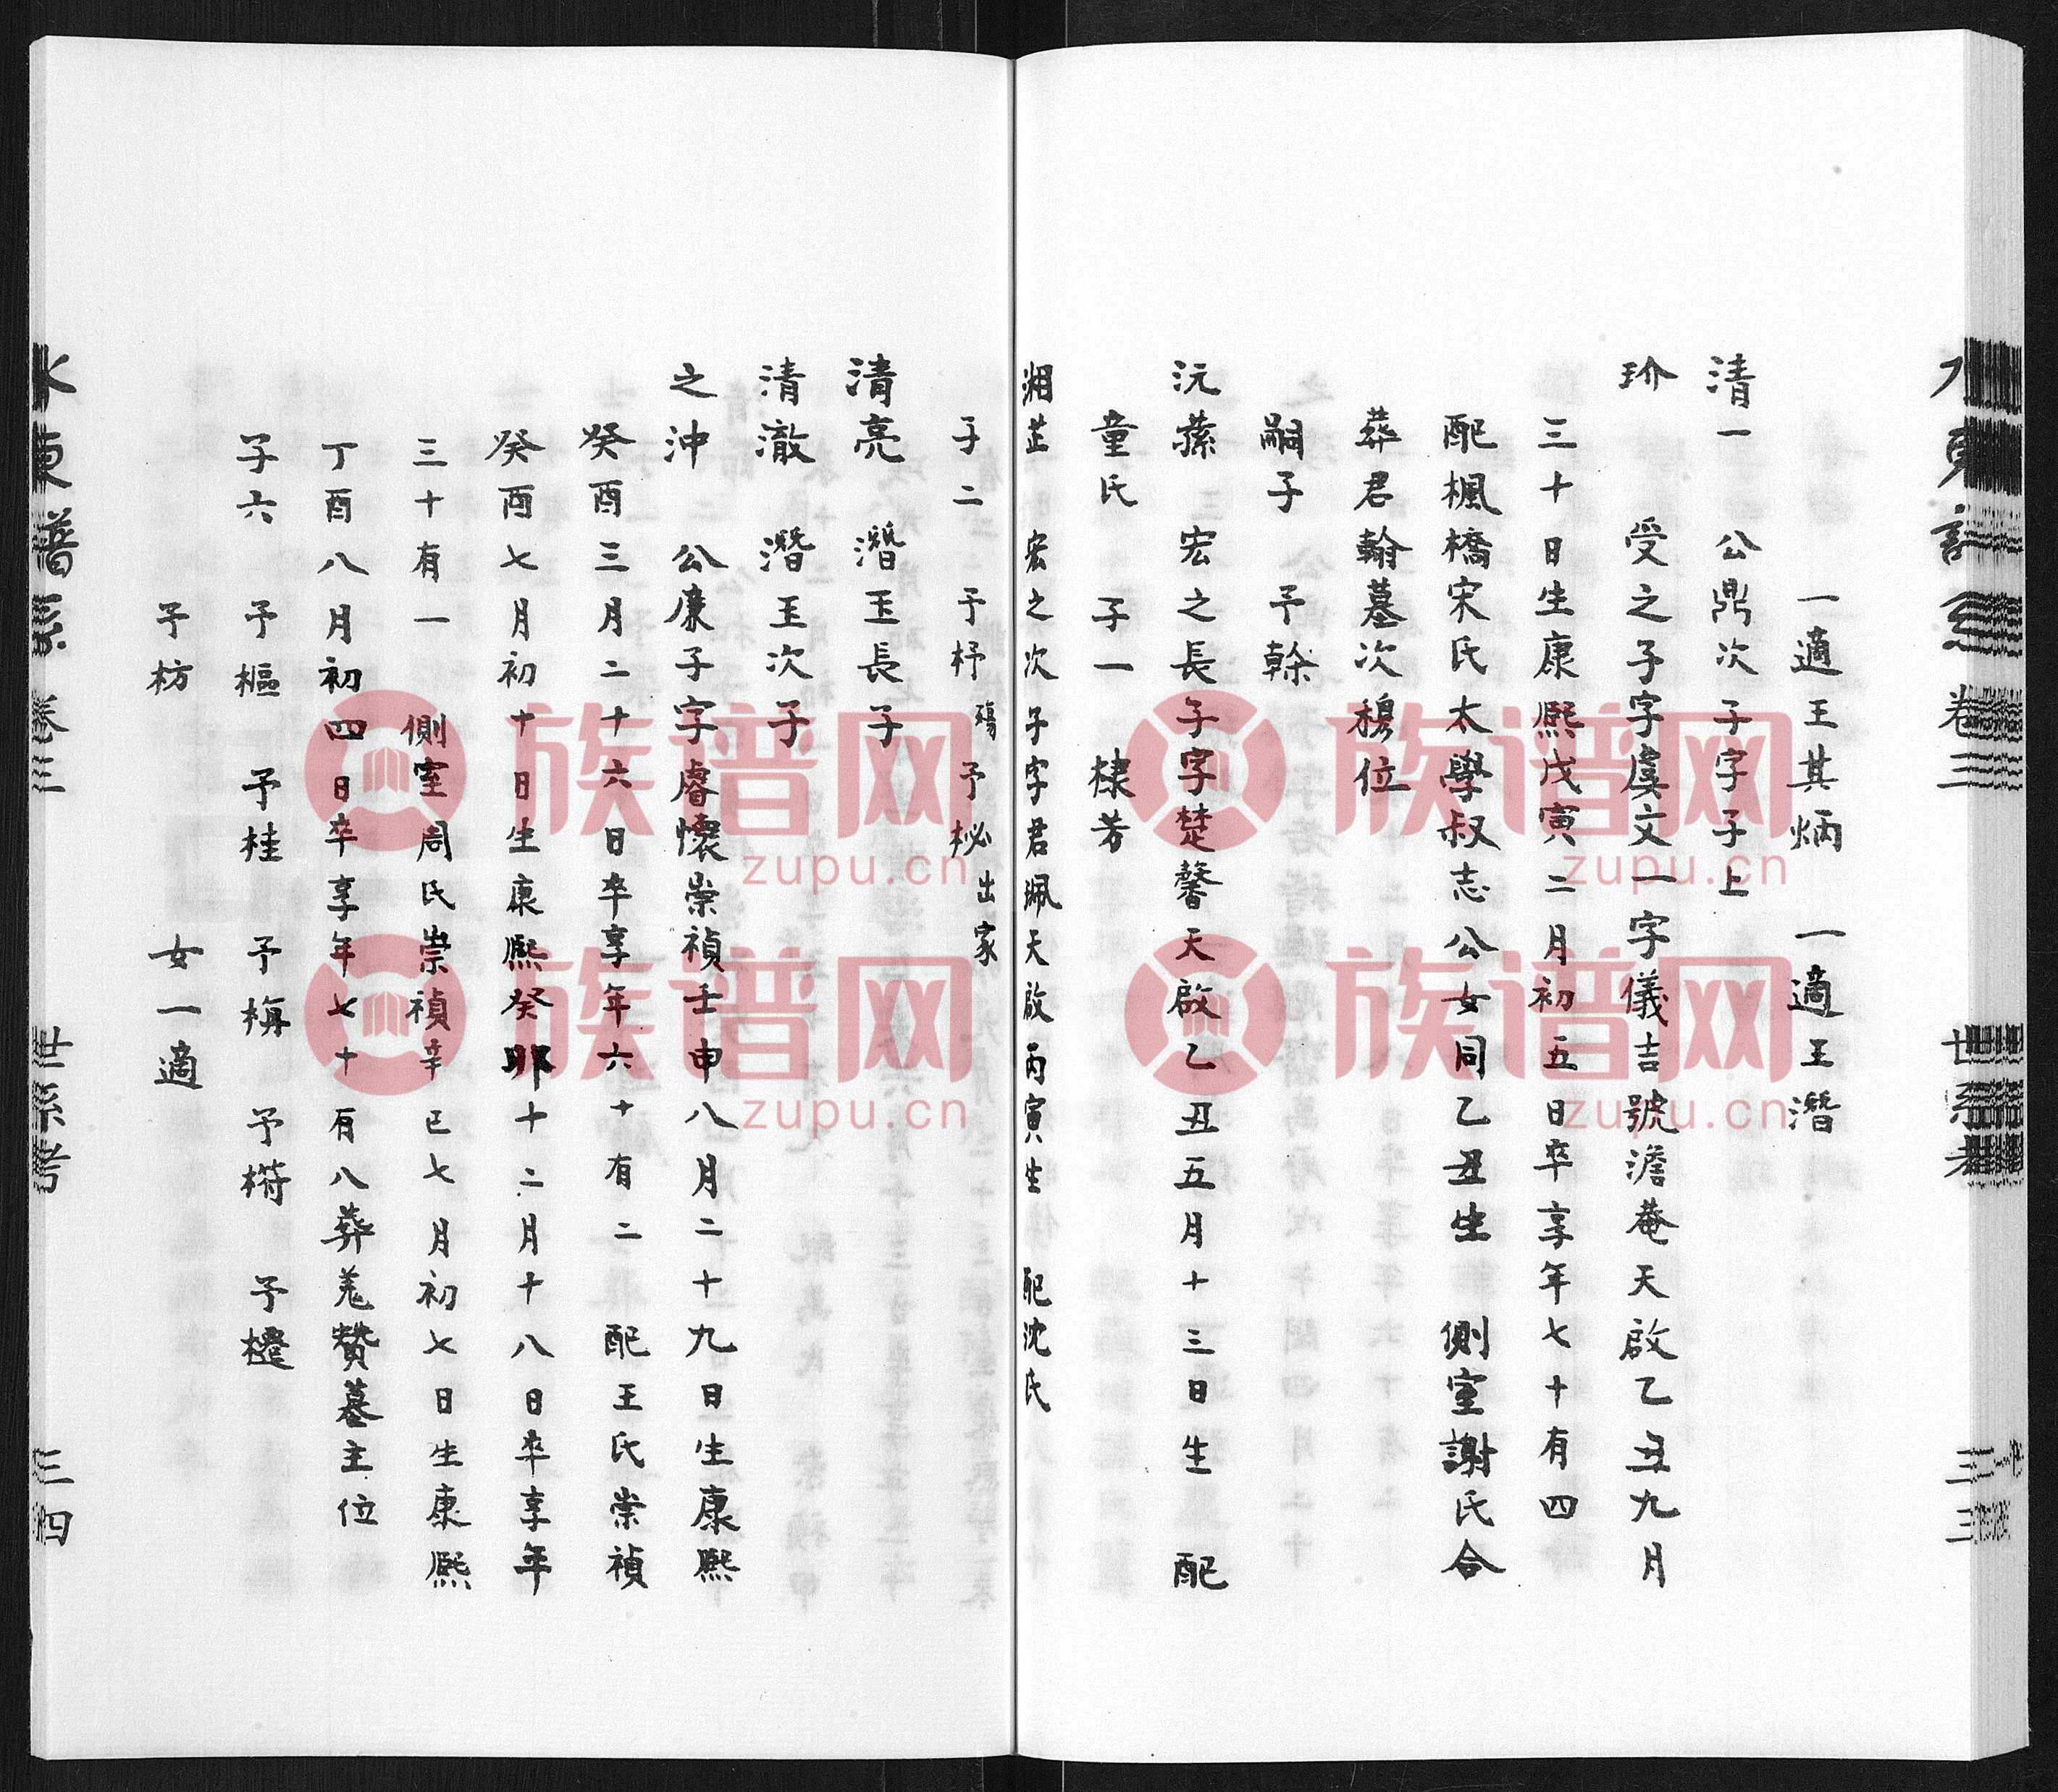 水東譜系 卷三 世系考 三三
一適王其炳 一適王潛
清一 公鼎次子字子上
玠 受之子字虞文一字儀吉號澹菴天啟乙丑九月
三十日生康熙戊寅二月初五日卒享年七十有四
配楓橋宋氏太學叔志公女同乙丑生 側室謝氏合
葬君翰墓次穆位
嗣子 予榦
沅蓀 宏之長子字楚馨天啟乙丑五月十三日生 配
童氏 子一 棣芳
湘芷 宏之次子字君珮天啟丙寅生 配沈氏
子二 予杼殤 予柲出家
清亮 潛玉長子
清澈 潛玉次子
之沖 公廉子字睿懷崇禎壬申八月二十九日生康熙
癸酉三月二十六日卒享年六十有二 配王氏崇禎
癸酉七月初十日生康熙癸卯十二月十八日卒享年
三十有一 側室周氏崇禎辛巳七月初七日生康熙
丁酉八月初四日卒享年七十有八葬羗贊墓主位
子六 予樞 予桂 予栴 予 予
予枋 女一適
水東譜系 卷三 世系考 三四
族谱网
zupu.cn
族谱网
zupu.cn
族谱网
zupu.cn
族谱网
zupu.cn